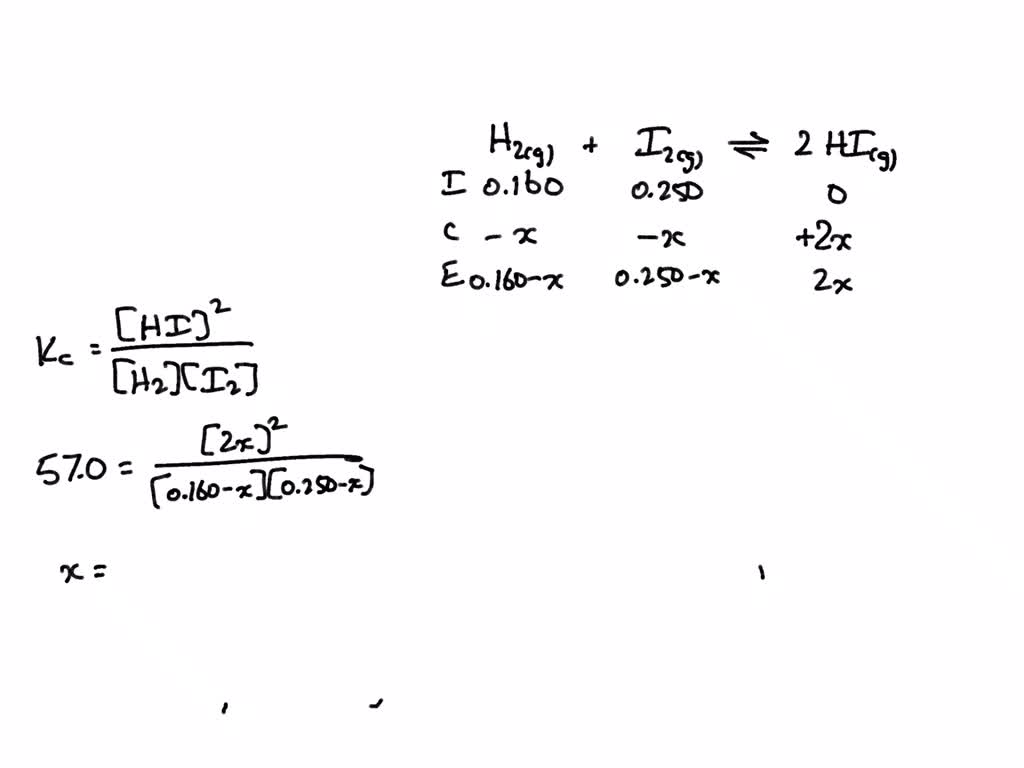 H₂(g) + I₂(g) ⇌ 2 HI(g)
I 0.160 0.250 0
C -x -x +2x
E 0.160-x 0.250-x 2x
Kc = [HI]² / [H₂][I₂]
57.0 = [2x]² / [0.160-x][0.250-x]
x =